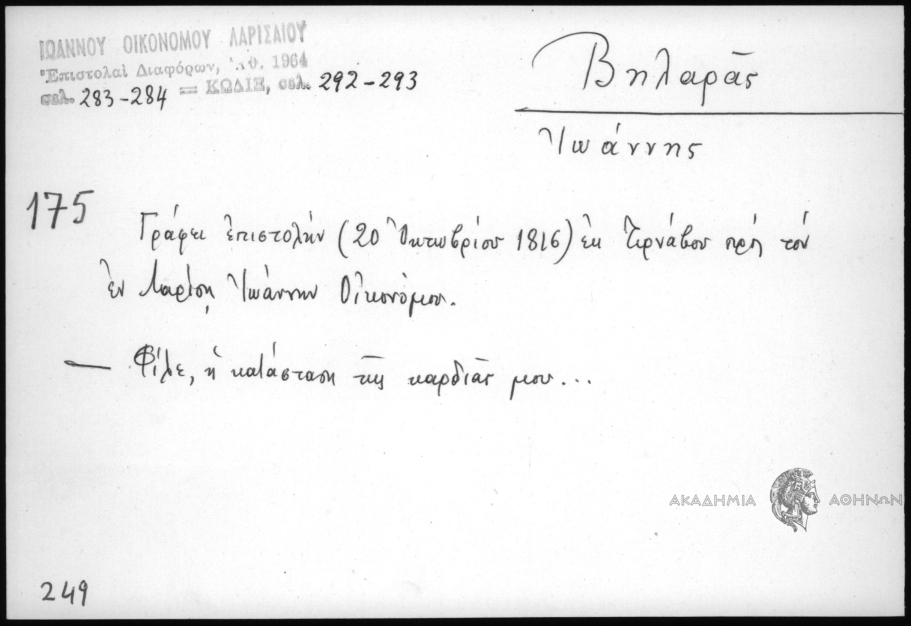 ΙΩΑΝΝΟΥ ΟΙΚΟΝΟΜΟΥ ΛΑΡΙΣΑΙΟΥ
Ἐπιστολαὶ Διαφόρων, Ἀθ. 1964
σελ. 283-284 = ΚΩΔΙΞ, σελ. 292-293
Βηλαρᾶς
Ἰωάννης
175
Γράφει ἐπιστολὴν (20 Ὀκτωβρίου 1816) ἐκ Τιρνάβου πρὸς τὸν
ἐν Λαρίσῃ Ἰωάννην Οἰκονόμου.
— Φίλε, ἡ κατάσταση τῆς καρδιᾶς μου...
ΑΚΑΔΗΜΙΑ ΑΘΗΝΩΝ
249